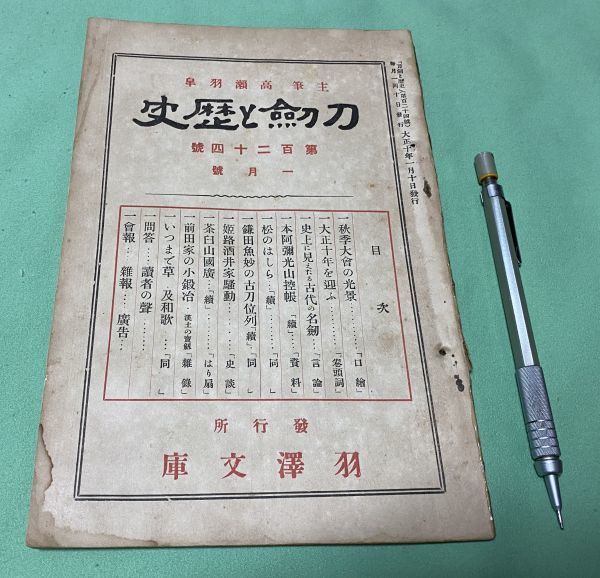 主筆高瀬羽皐
刀劍と歷史
第百二十四號
一月號
大正十年一月十日發行
目次
一秋季大會の光景……「口繪」
一大正十年を迎ふ……「卷頭詞」
一史上に見えたる古代の名劍…「言論」
一本阿彌光山控帳「續」…「資料」
一松のはしら…「續」……「同」
一鎌田魚妙の古刀位列「續」「同」
一姬路酒井家騷動……「史談」
一茶臼山國廣…「續」…「はり扇」
一前田家の小鍛冶 漢土の寶劍「雜錄」
一いつまで草…及和歌……「同」
一問答…讀者の聲……
一會報…雜報…廣告…
發行所
羽澤文庫